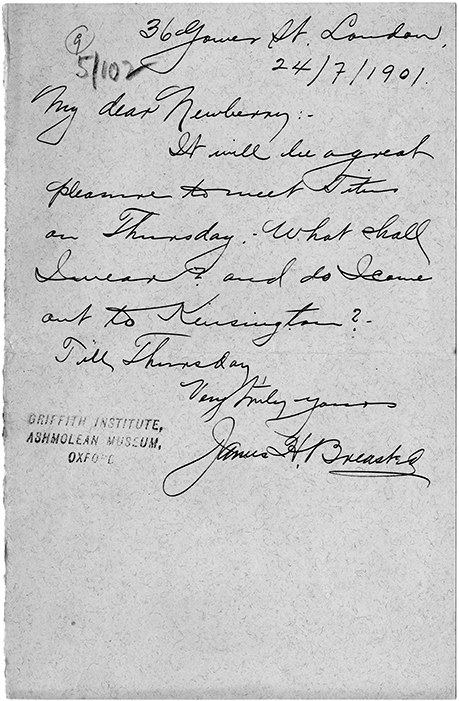 9
5/102
36 Gower St. London,
24/7/1901.
My dear Newberry:-
It will be a great
pleasure to meet Titus
on Thursday. - What shall
I wear? and do I come
out to Kensington? -
Till Thursday
Very truly yours
James H. Breasted
GRIFFITH INSTITUTE,
ASHMOLEAN MUSEUM,
OXFORD